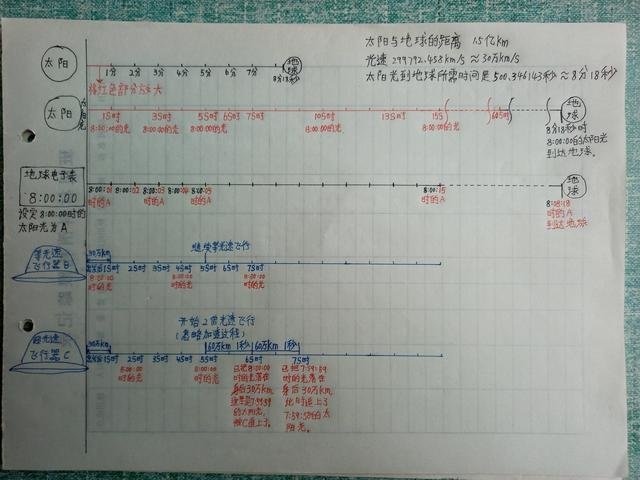 太阳与地球的距离 15亿km
光速 299792.458km/s ≈30万km/s
太阳光到地球所需时间是500.346143秒≈8分18秒
太阳
1分 2分 3分 4分 5分 6分 7分
8分18秒
地球
将红色部分放大
太阳
太阳光
1S时 3S时 5S时 6S时 7S时 10S时 13S时 15S 60S时
8:00:00的光 8:00:00的光 8:00:00的光 8:00:00的光
地球
8分18秒时
8:00:00的太阳光
到达地球。
地球电子表
8:00:00
设定8:00:00时的
太阳光为A
8:00:01 8:00:02 8:00:03 8:00:04 8:00:05 8:00:15
时的A 时的A 时的A 时的A
地球
8:08:18
时的A
到达地球
等光速
飞行器B
30万km
继续等光速飞行
1S时 2S时 3S时 4S时 5S时 6S时 7S时
8:00:00
时的光
8:00:00
时的光
8:00:00
时的光
超光速
飞行器C
30万km
开始2倍光速飞行
(忽略加速过程)
60万km 1秒 60万km 1秒
1S时 2S时 3S时 4S时 5S时 6S时 7S时
8:00:00
时的光
8:00:00
时的光
已把8:00:00
时的光落在
身后30万km,
7:59:59
的太阳光,
被C追上了。
已把7:59:59
时的光落在
身后30万km,
此时追上了
7:59:58的太
阳光。